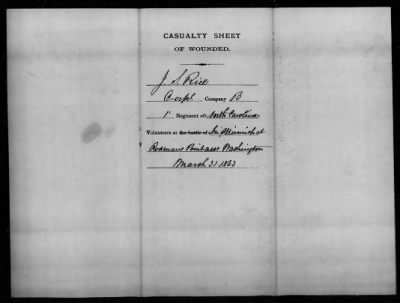 CASUALTY SHEET
OF WOUNDED.
J. S. Rice
Corpl Company B
1" Regiment of North Carolina
Volunteers at the battle of In skirmish at
Near Washington
March 31 1863